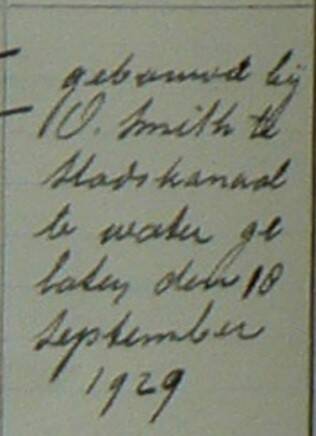 gebouwd bij
O. Smith te
Stadskanaal
te water ge
laten den 18
September
1929